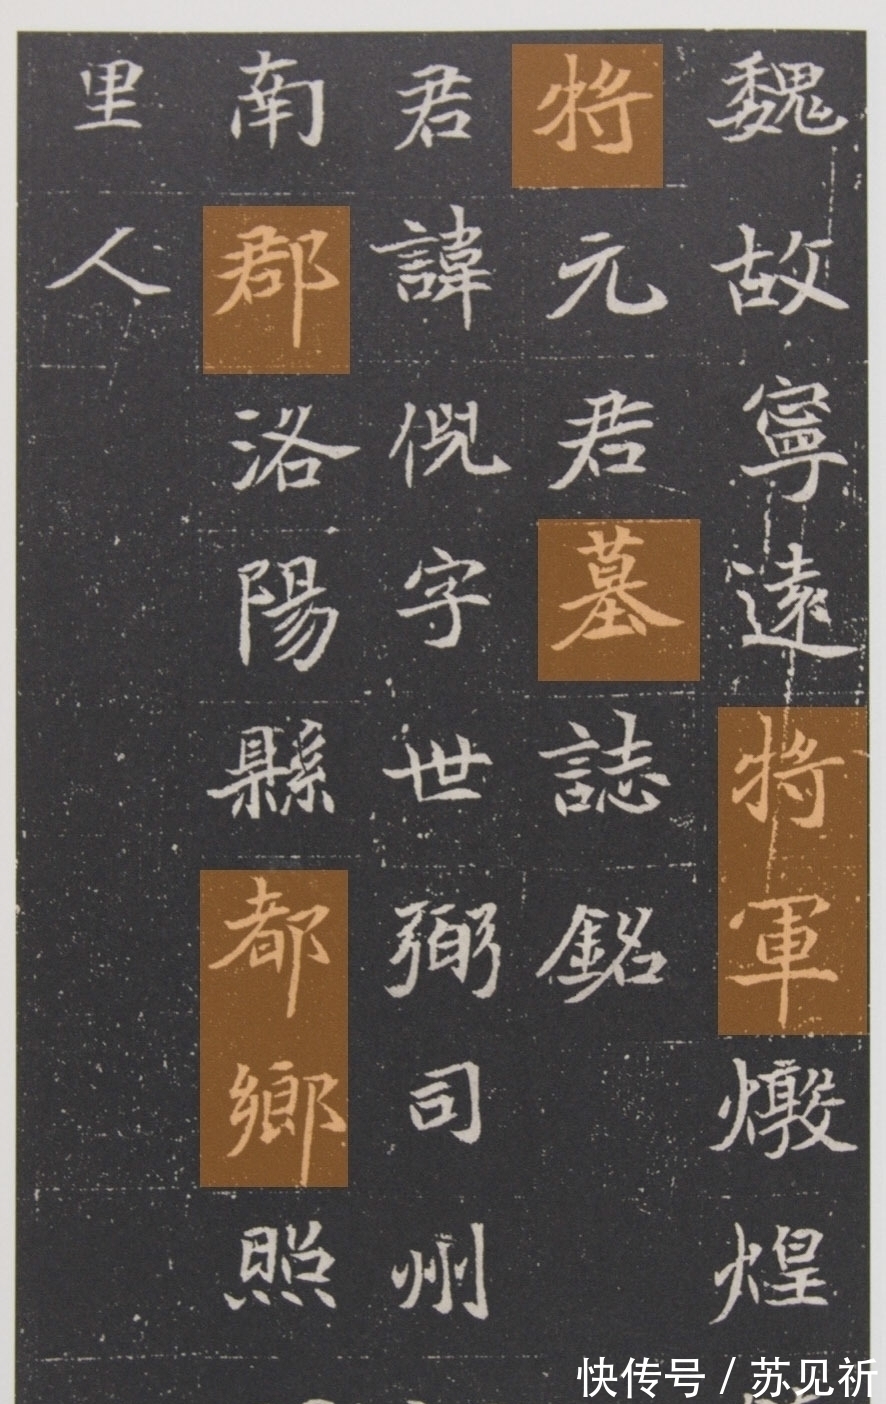 魏故寧遠將軍燉煌
將元君墓誌銘
君諱倪字世弼司州
南郡洛陽縣都鄉照
里人
快传号 / 苏见祈